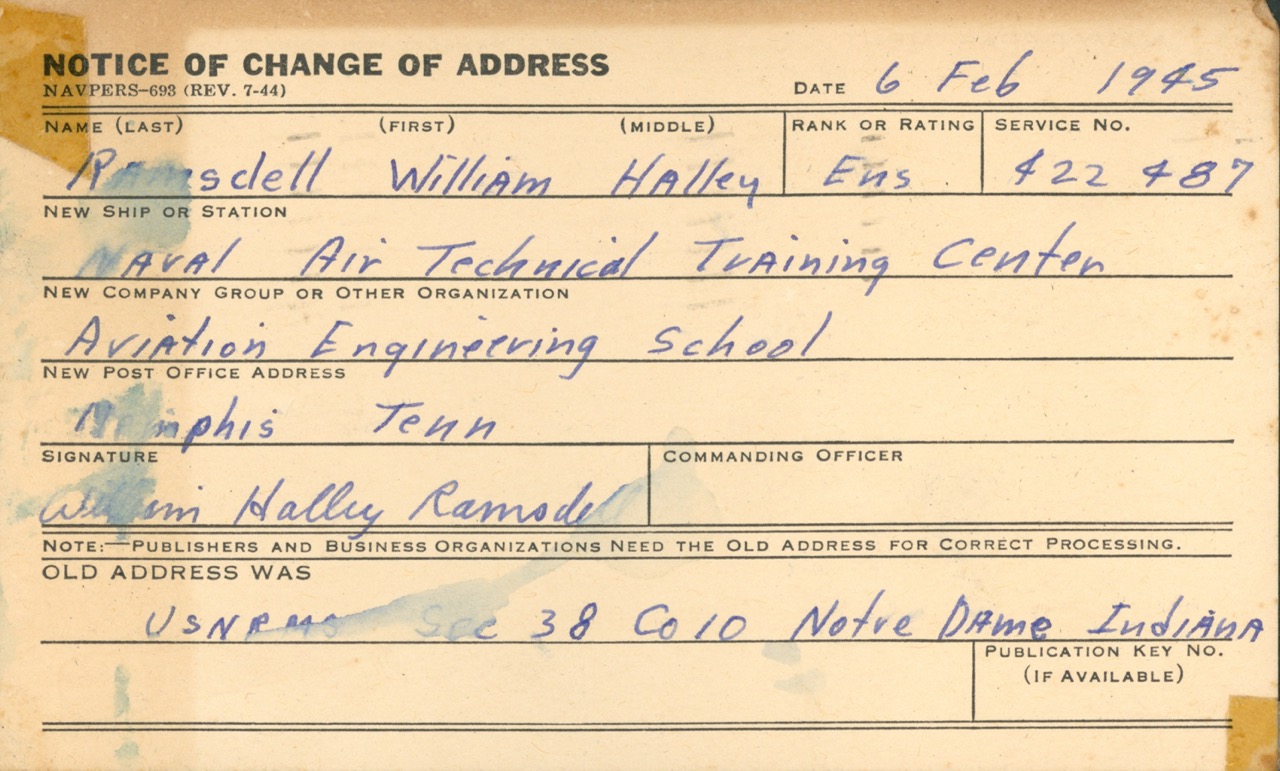 NOTICE OF CHANGE OF ADDRESS
NAVPERS–693 (REV. 7-44)
DATE 6 Feb 1945
NAME (LAST) (FIRST) (MIDDLE) RANK OR RATING SERVICE NO.
Ramsdell William Halley Ens 422 487
NEW SHIP OR STATION
Naval Air Technical Training Center
NEW COMPANY GROUP OR OTHER ORGANIZATION
Aviation Engineering School
NEW POST OFFICE ADDRESS
Memphis Tenn
SIGNATURE COMMANDING OFFICER
William Halley Ramsdell
NOTE:—PUBLISHERS AND BUSINESS ORGANIZATIONS NEED THE OLD ADDRESS FOR CORRECT PROCESSING.
OLD ADDRESS WAS
USNRMS Sec 38 Co 10 Notre Dame Indiana
PUBLICATION KEY NO.
(IF AVAILABLE)